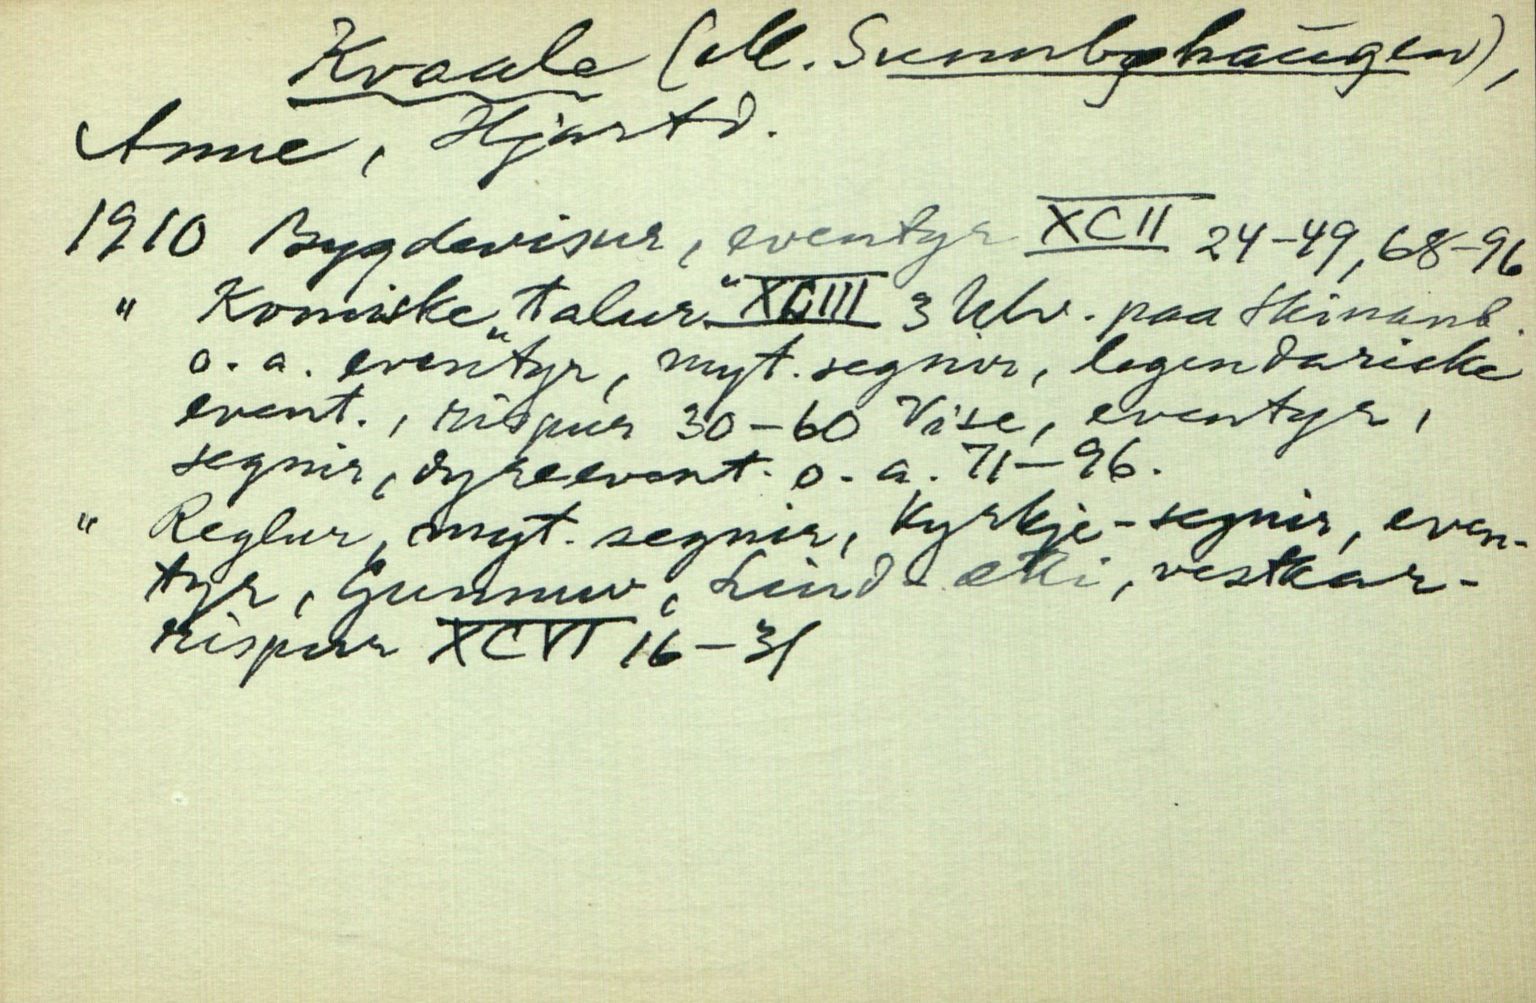 Kvaale (el. Sunnbøhaugen),
Anne, Hjartd.
1910 Bygdevisur, eventyr XCII 24-49, 68-96
" Komiske "talur" XCIII 3 Ulv. paa Skinand.
o. a. eventyr, myt. segnir, legendariske
event., rispur 30-60 Vise, eventyr,
segnir, dyreevent. o. a. 71-96.
" Reglur, myt. segnir, Kyrkje-segnir, even-
tyr, Gunnuv, Lind-ætti, vestkar-
rispur XCVI 16-31